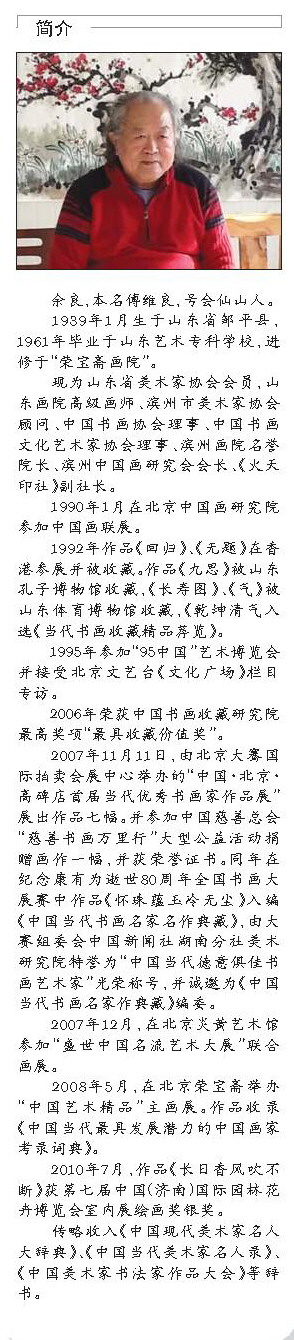 简介
余良,本名傅维良,号会仙山人。
1939年1月生于山东省邹平县,
1961年毕业于山东艺术专科学校,进
修于“荣宝斋画院”。
现为山东省美术家协会会员,山
东画院高级画师、滨州市美术家协会
顾问、中国书画协会理事、中国书画
文化艺术家协会理事、滨州画院名誉
院长、滨州中国画研究会会长、《火天
印社》副社长。
1990年1月在北京中国画研究院
参加中国画联展。
1992年作品《回归》、《无题》在香
港参展并被收藏。作品《九思》被山东
孔子博物馆收藏,《长寿图》、《气》被
山东体育博物馆收藏,《乾坤清气入
选《当代书画收藏精品荐览》。
1995年参加“95中国”艺术博览会
并接受北京文艺台《文化广场》栏目
专访。
2006年荣获中国书画收藏研究院
最高奖项“最具收藏价值奖”。
2007年11月11日,由北京大赛国
际拍卖会展中心举办的“中国·北京·
高碑店首届当代优秀书画家作品展”
展出作品七幅。并参加中国慈善总会
“慈善书画万里行”大型公益活动捐
赠画作一幅,并获荣誉证书。同年在
纪念康有为逝世80周年全国书画大
展赛中作品《怀珠蕴玉冷无尘》入编
《中国当代书画名家名作典藏》,由大
赛组委会中国新闻社湖南分社美术
研究院特誉为“中国当代德意俱佳书
画艺术家”光荣称号,并诚邀为《中国
当代书画名家作典藏》编委。
2007年12月,在北京炎黄艺术馆
参加“盛世中国名流艺术大展”联合
画展。
2008年5月,在北京荣宝斋举办
“中国艺术精品”主画展。作品收录
《中国当代最具发展潜力的中国画家
考录词典》。
2010年7月,作品《长日香风吹不
断》获第七届中国(济南)国际园林花
卉博览会室内展绘画奖银奖。
传略收入《中国现代美术家名人
大辞典》、《中国当代美术家名人录》、
《中国美术家书法家作品大会》等辞
书。